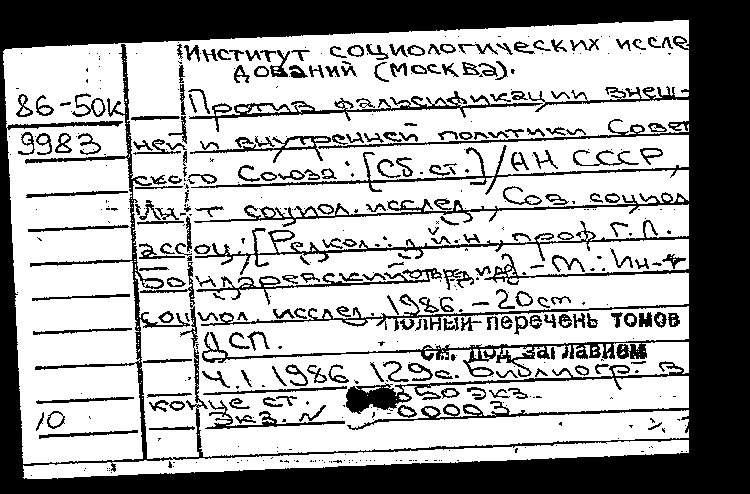 Институт социологических иссле
дований (Москва).
86-50к Против фальсификации внеш-
9983 ней и внутренней политики Совет
ского Союза: [Сб. ст.] / АН СССР,
Ин-т социол. исслед., Сов. социол
ассоц.; [Редкол.: д.и.н., проф. Г.Л.
Бондаревский (отв. ред.) и др.]. - М.: Ин-т
социол. исслед., 1986. - 20 ст.
Полный перечень томов
ДСП.
см. под заглавием
Ч.1. 1986. 129с. Библиогр. в
конце ст. 350 экз.
10 Экз. № 00003.